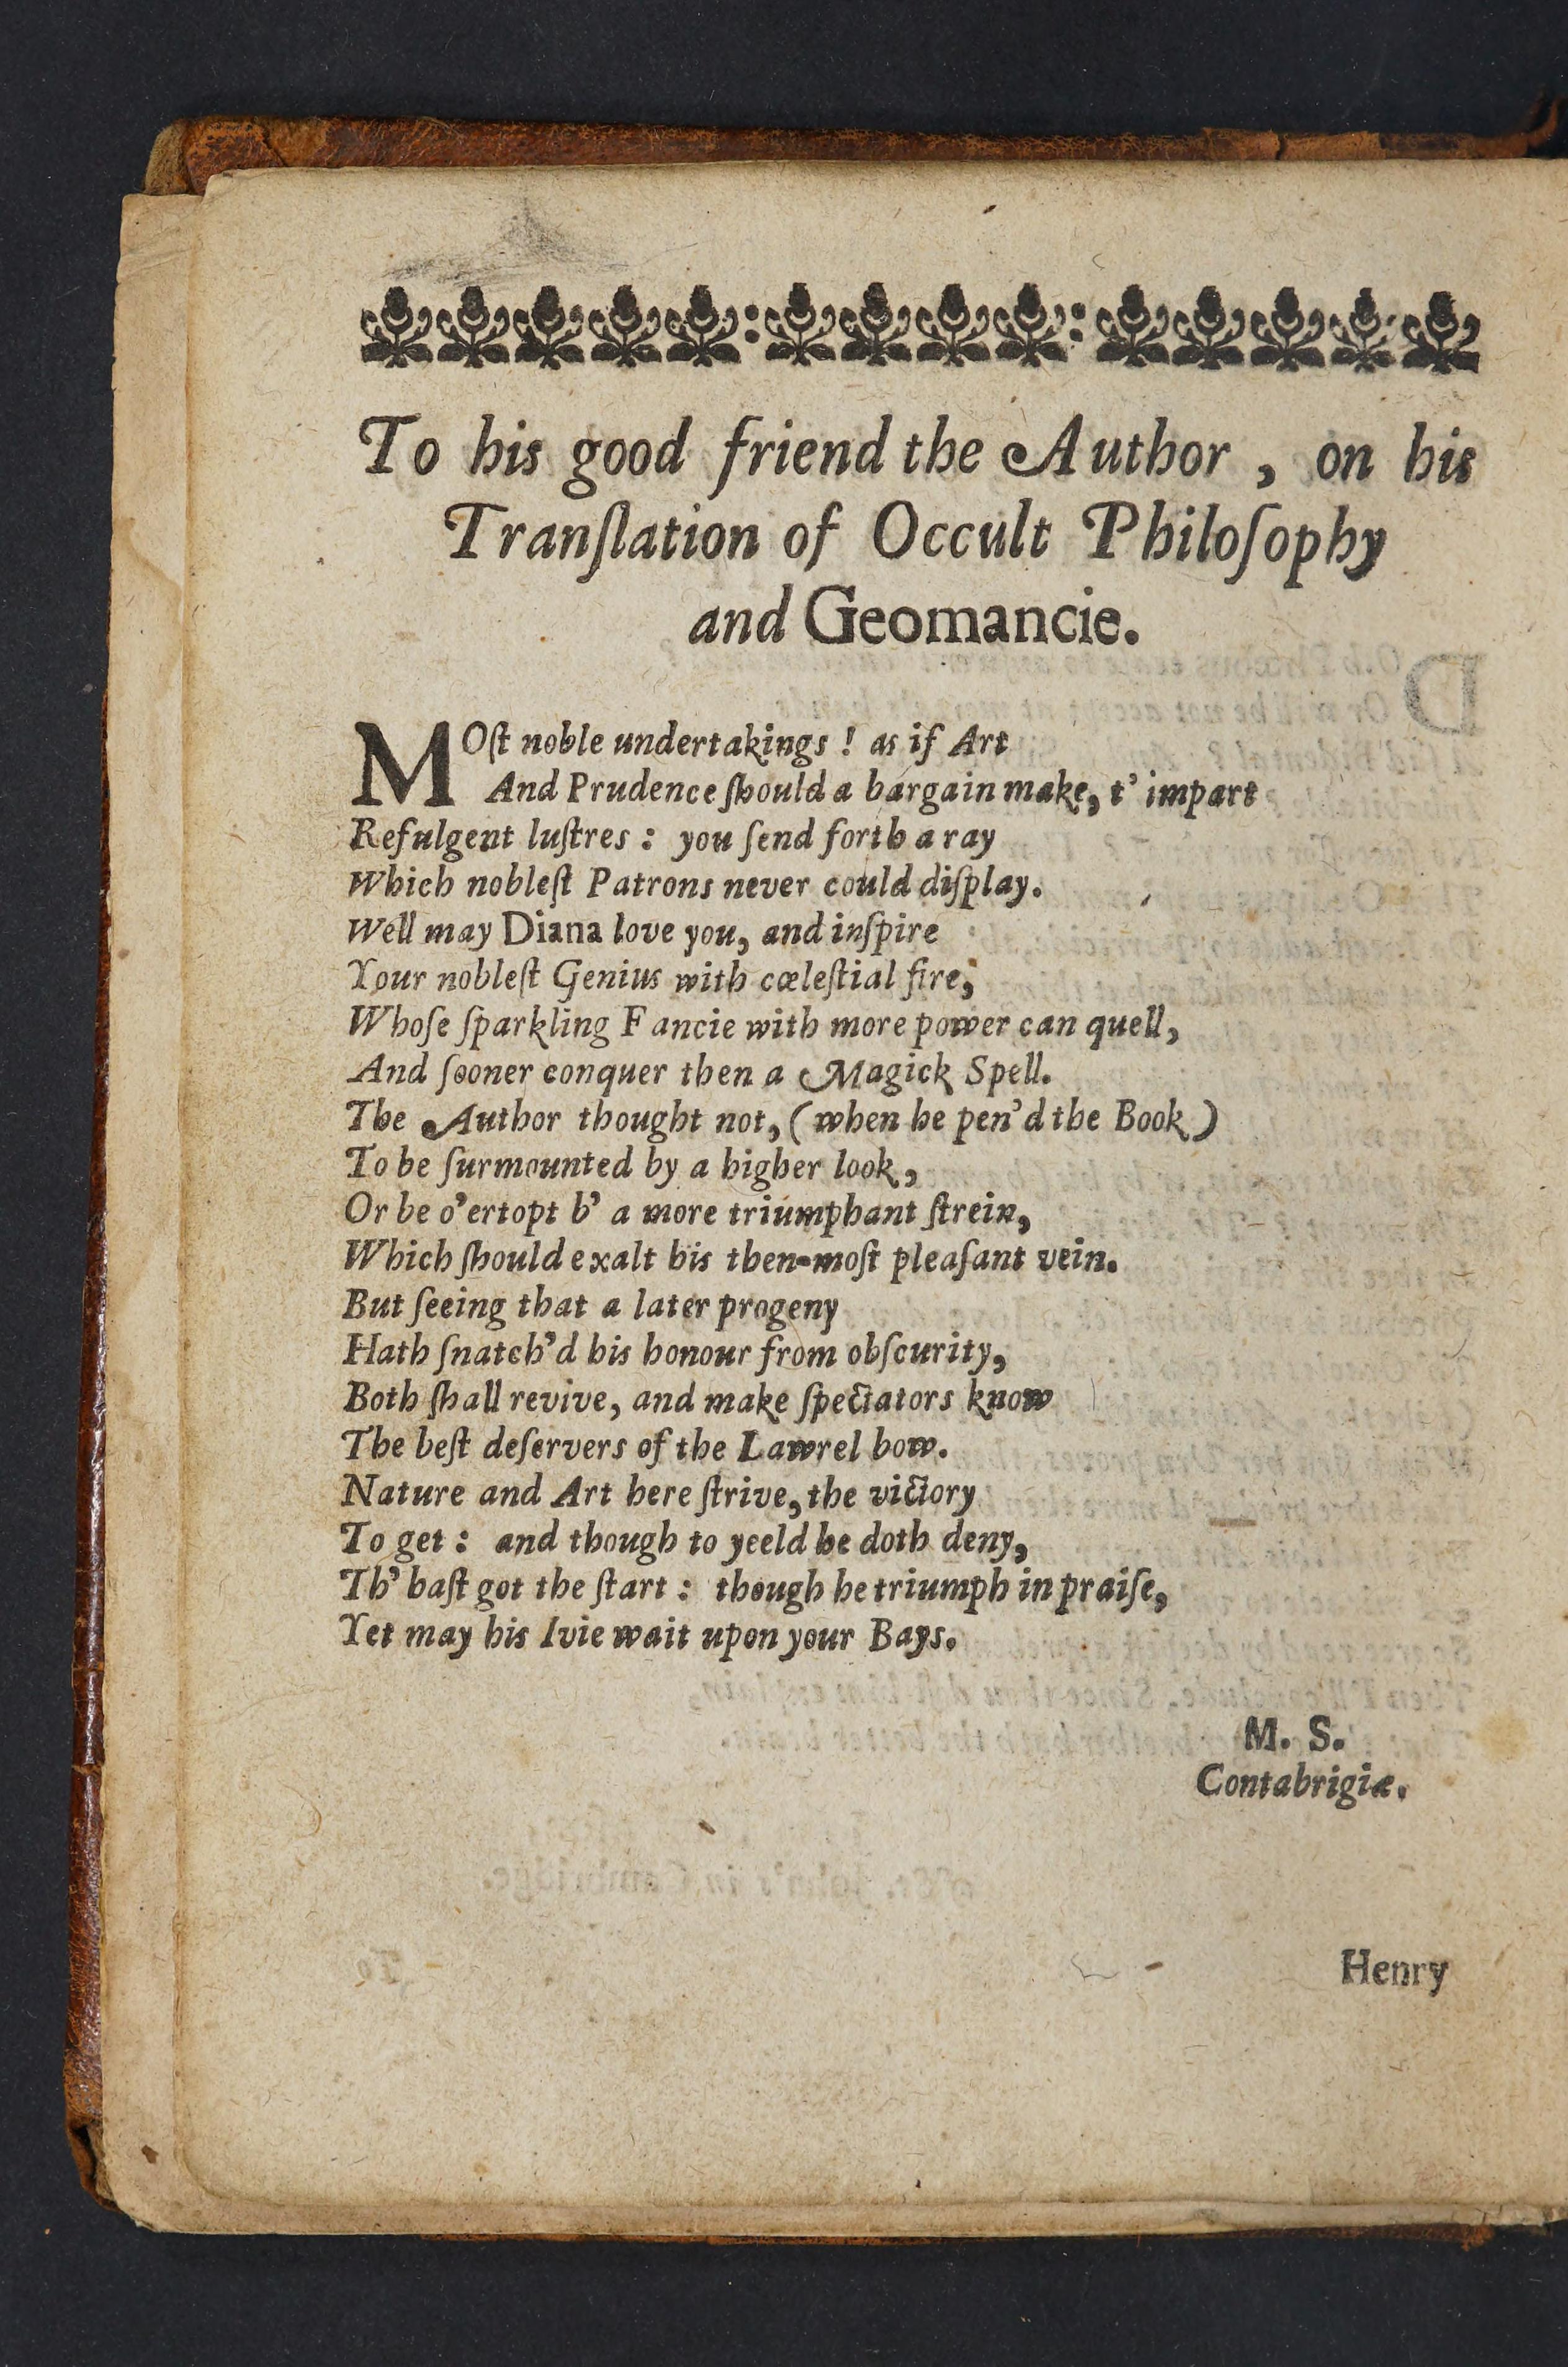 To his good friend the Author, on his
Tranſlation of Occult Philoſophy
and Geomancie.
MOſt noble undertakings! as if Art
And Prudence ſhould a bargain make, t' impart
Refulgent luſtres: you ſend forth a ray
Which nobleſt Patrons never could diſplay.
Well may Diana love you, and inſpire
Your nobleſt Genius with cœleſtial fire,
Whoſe ſparkling Fancie with more power can quell,
And ſooner conquer then a Magick Spell.
The Author thought not, (when he pen'd the Book)
To be ſurmounted by a higher look,
Or be o'ertopt b' a more triumphant ſtrein,
Which ſhould exalt his then-moſt pleaſant vein.
But ſeeing that a later progeny
Hath ſnatch'd his honour from obſcurity,
Both ſhall revive, and make ſpectators know
The beſt deſervers of the Lawrel bow.
Nature and Art here ſtrive, the victory
To get: and though to yeeld he doth deny,
Th' haſt got the ſtart: though he triumph in praiſe,
Yet may his Ivie wait upon your Bays.
M. S.
Contabrigiæ.
Henry